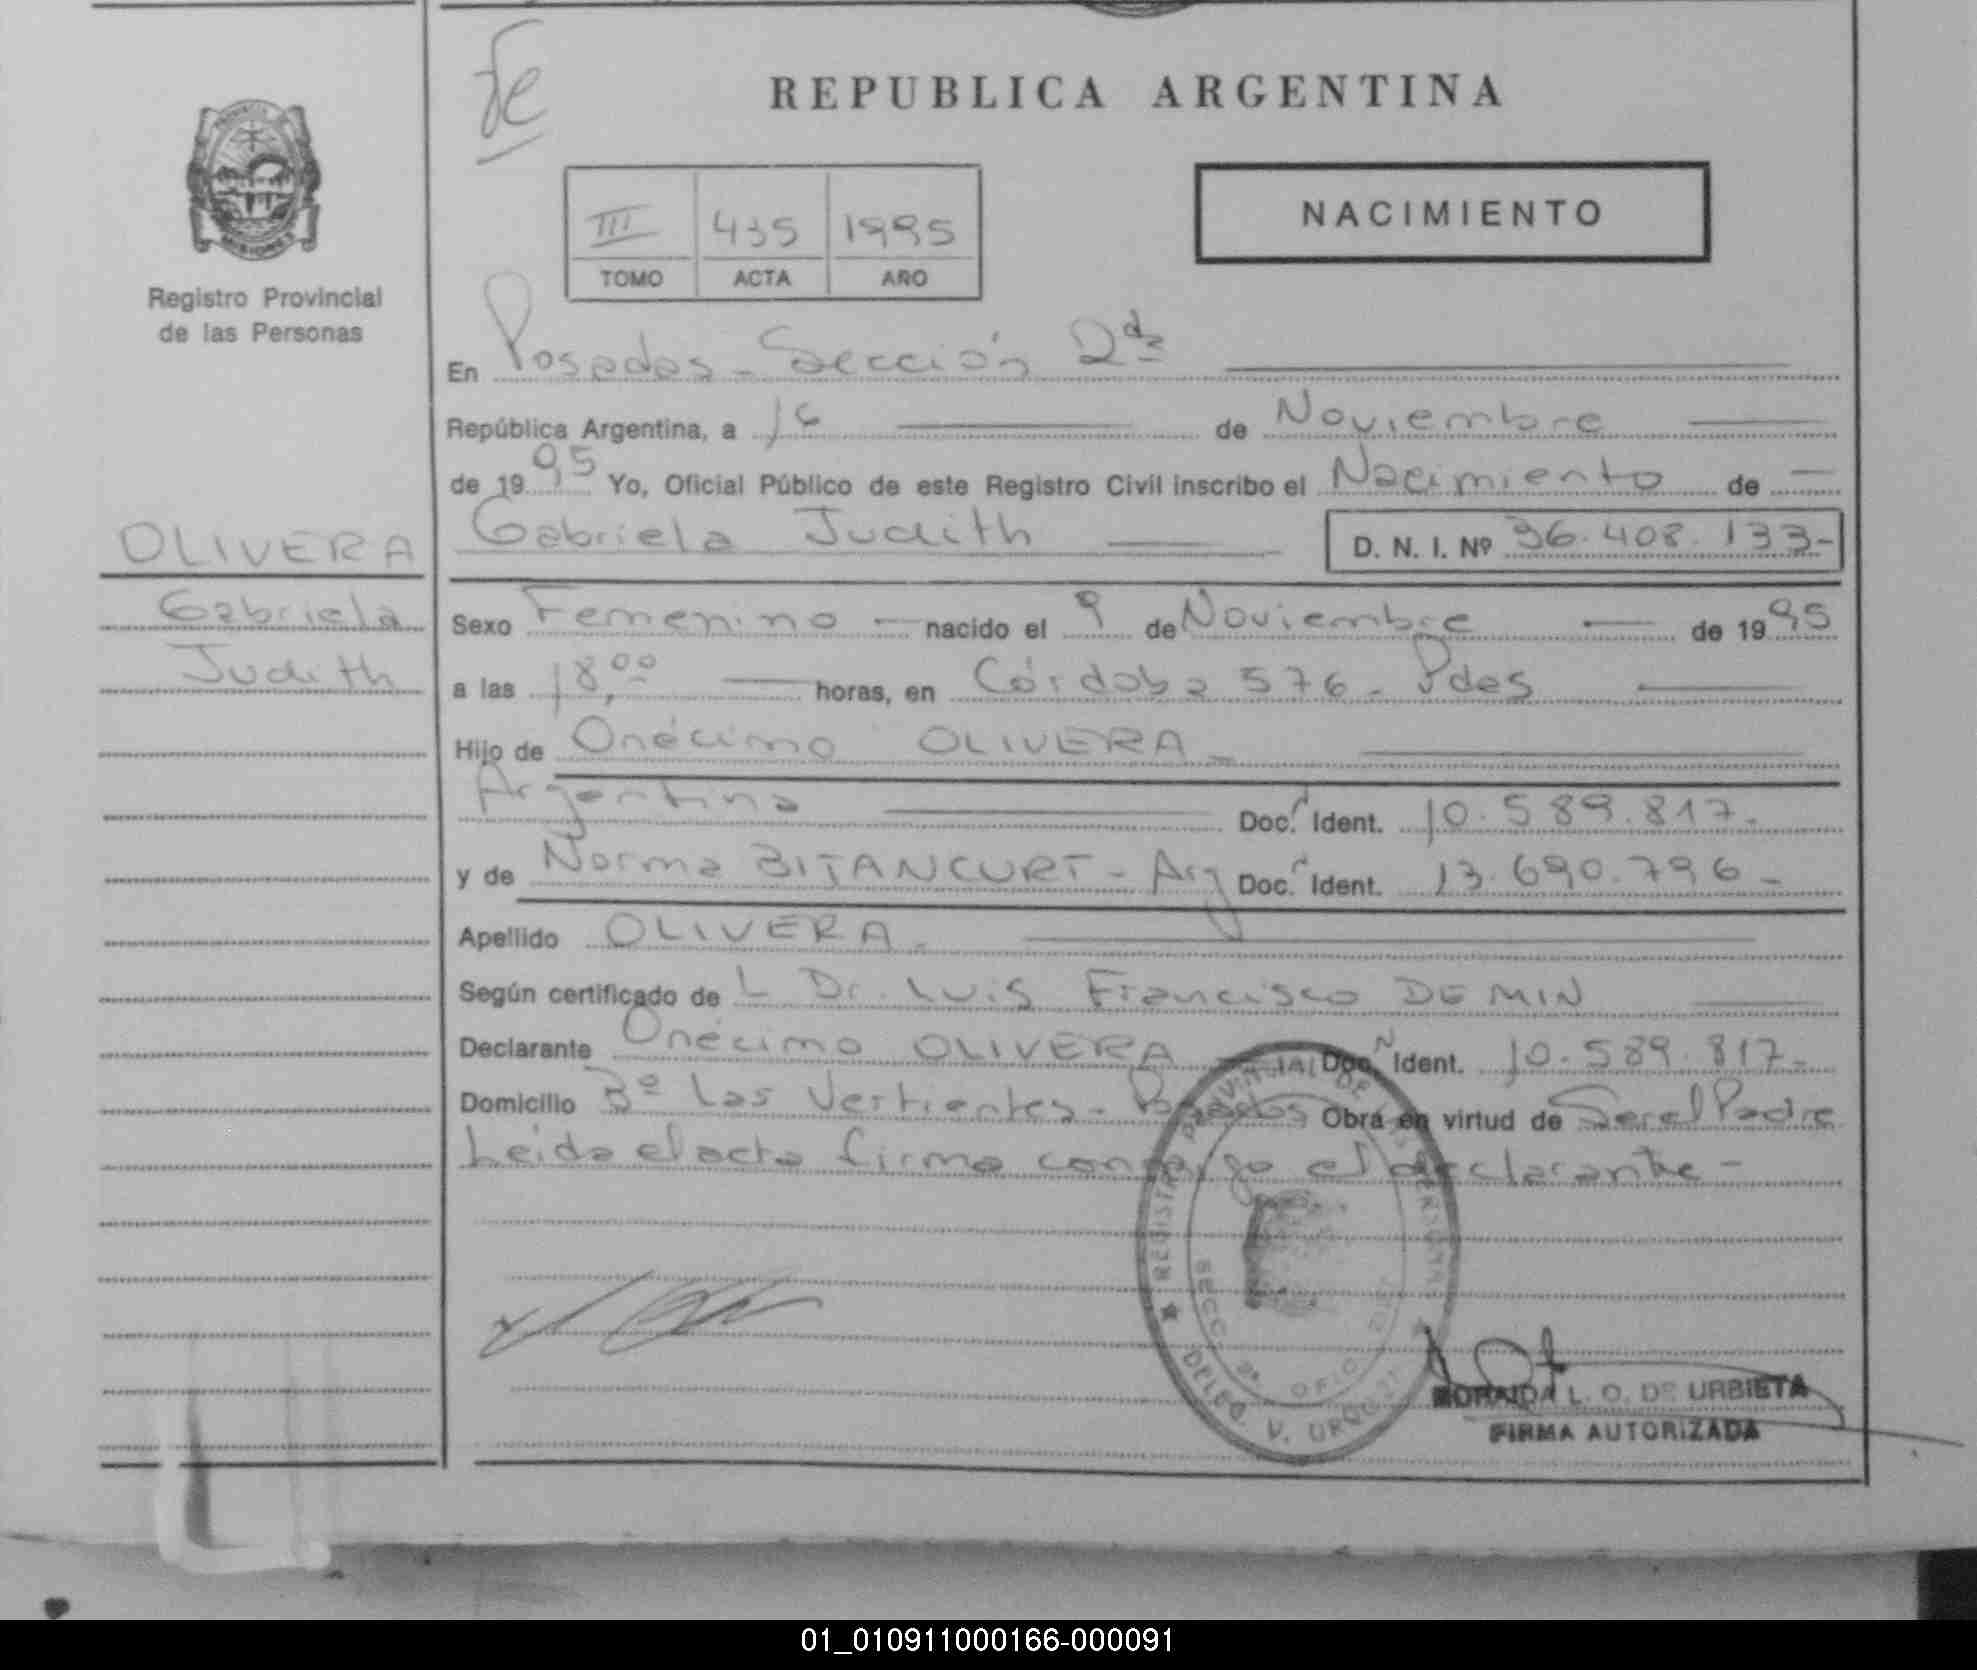 fe
REPUBLICA ARGENTINA
NACIMIENTO
III 435 1995
TOMO ACTA AÑO
PROVINCIA
MISIONES
Registro Provincial
de las Personas
En Posadas - Sección 2da
República Argentina, a 16 de Noviembre
de 1995 Yo, Oficial Público de este Registro Civil inscribo el Nacimiento de
OLIVERA
Gabriela
Judith
Gabriela Judith D. N. I. Nº 36.408.133-
Sexo Femenino - nacido el 9 de Noviembre - de 1995
a las 18,00 horas, en Córdoba 576 - Pdas
Hijo de Onécimo OLIVERA -
Argentina Doc. N Ident. 10.589.817.
y de Norma BITANCURT - Arg Doc. N Ident. 13.690.796 -
Apellido OLIVERA -
Según certificado de L Dr. Luis Francisco DE MIN
Declarante Onécimo OLIVERA Doc. N Ident. 10.589.817-
Domicilio Bº Las Vertientes - Posadas Obra en virtud de Ser el Padre
Leida el acta firma conmigo el declarante -
REGISTRO PROVINCIAL DE LAS PERSONAS
SECC. 2ª OFIC.
DELEG. V. URQUIZA
L. O. DE URBIETA
FIRMA AUTORIZADA
01_010911000166-000091